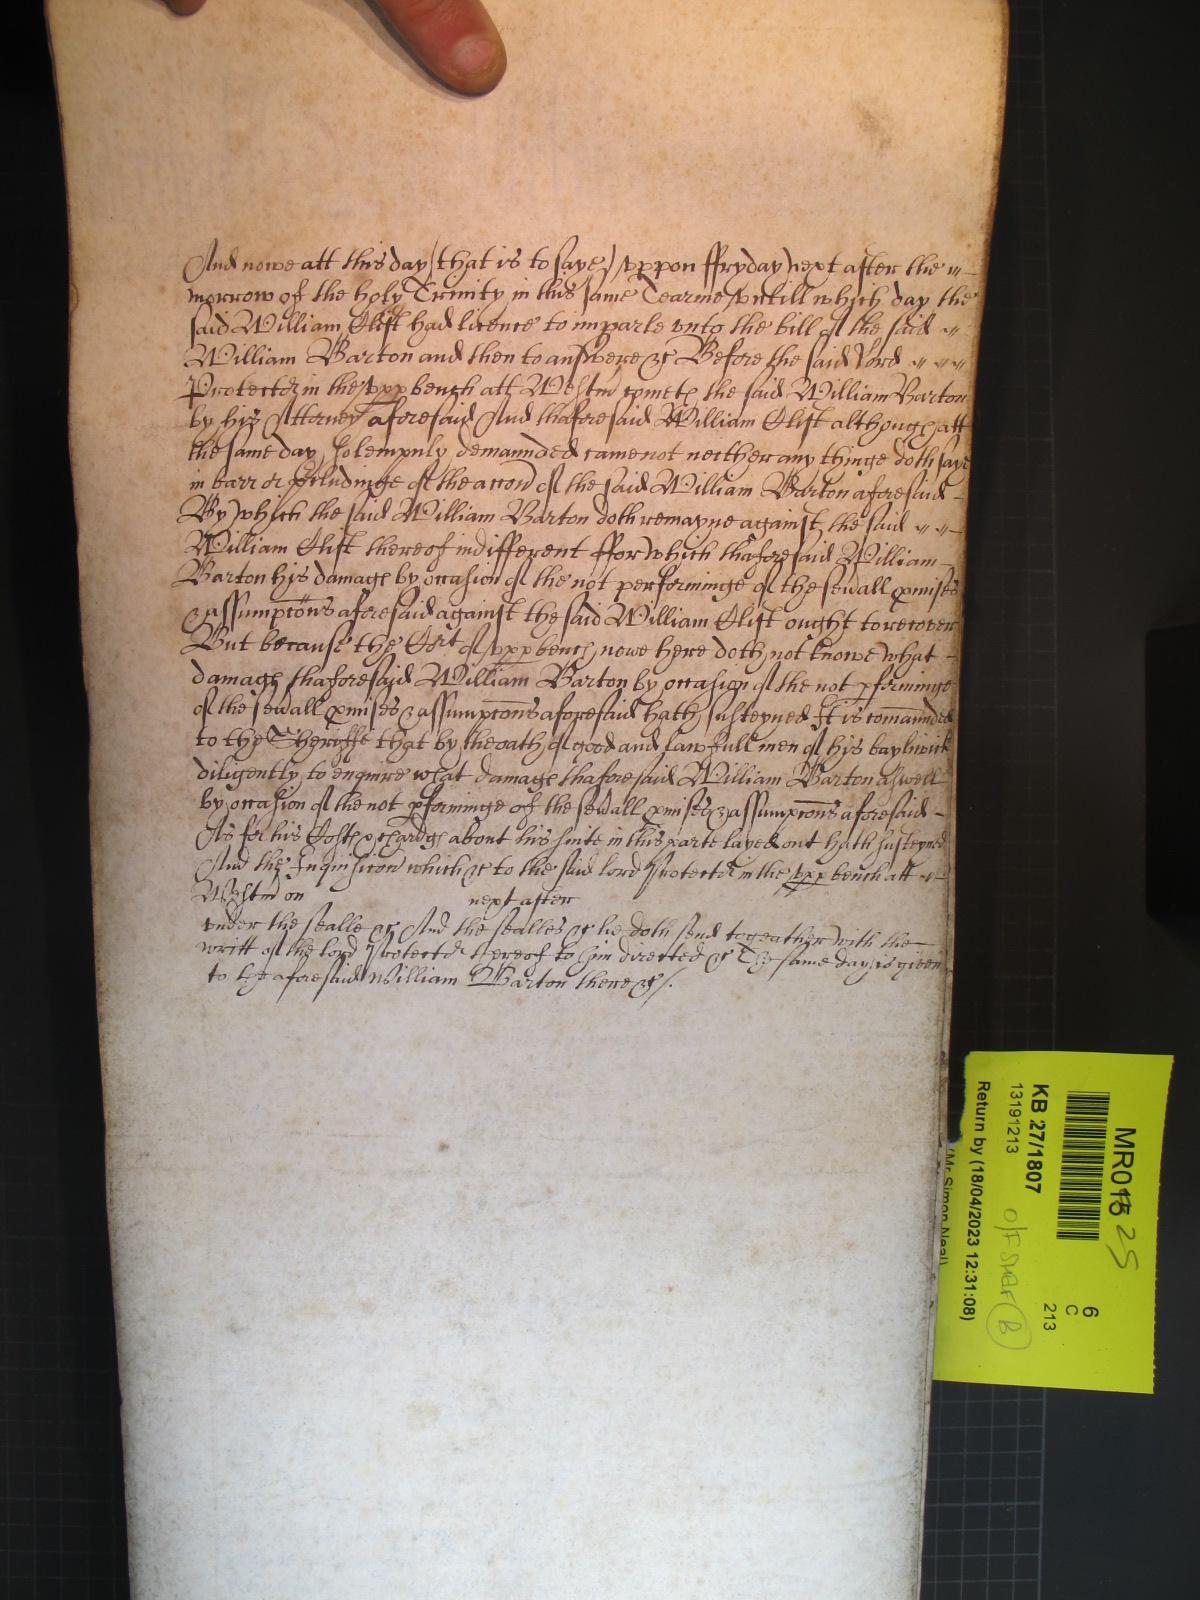 And nowe att this day (that is to saye) vppon ffryday next after the
morrow of the holy Trinity in this same Tearme vntill which day the
said William Clift had licence to imparle vnto the bill of the said
William Barton and then to answere &c Before the said Lord
Protector in the vpp bench att Westm cometh the said William Barton
by his Attorney aforesaid And thaforesaid William Clift although att
the same day solempnly demannded came not neither any thinge doth saye
in barr or p̄cludinge of the accon of the said William Barton aforesaid
By which the said William Barton doth remayne against the said
William Clift thereof indifferent ffor which thaforesaid William
Barton his damages by occasion of the not performinge of the seuall pmises
& assumptons aforesaid against the said William Clift ought to recover
But because the Cort of vpp bench nowe here doth not knowe what
damages thaforesaid William Barton by occasion of the not pforminge
of the seuall pmises & assumptons aforesaid hath susteyned It is comannded
to the Sheriffe that by the oath of good and lawfull men of his baylywick
diligently to enquire what damages thaforesaid William Barton aswell
by occasion of the not pforminge of the seuall pmises & assumptons aforesaid
As for his Costes & chardges about his suite in this parte layed out hath susteyned
And the Inquisicon which &c to the said lord Protector in the vpp bench att
Westm on next after
vnder the sealle &c And the sealles &c he doth send togeather with the
writt of the lord Protector thereof to him directed &c The same day is given
to the aforesaid William Barton there &c /.
MR018
25
6
C
213
KB 27/1807
13191213
O/F SHELF
B
Return by (18/04/2023 12:31:08)
(Mr Simon Neal)